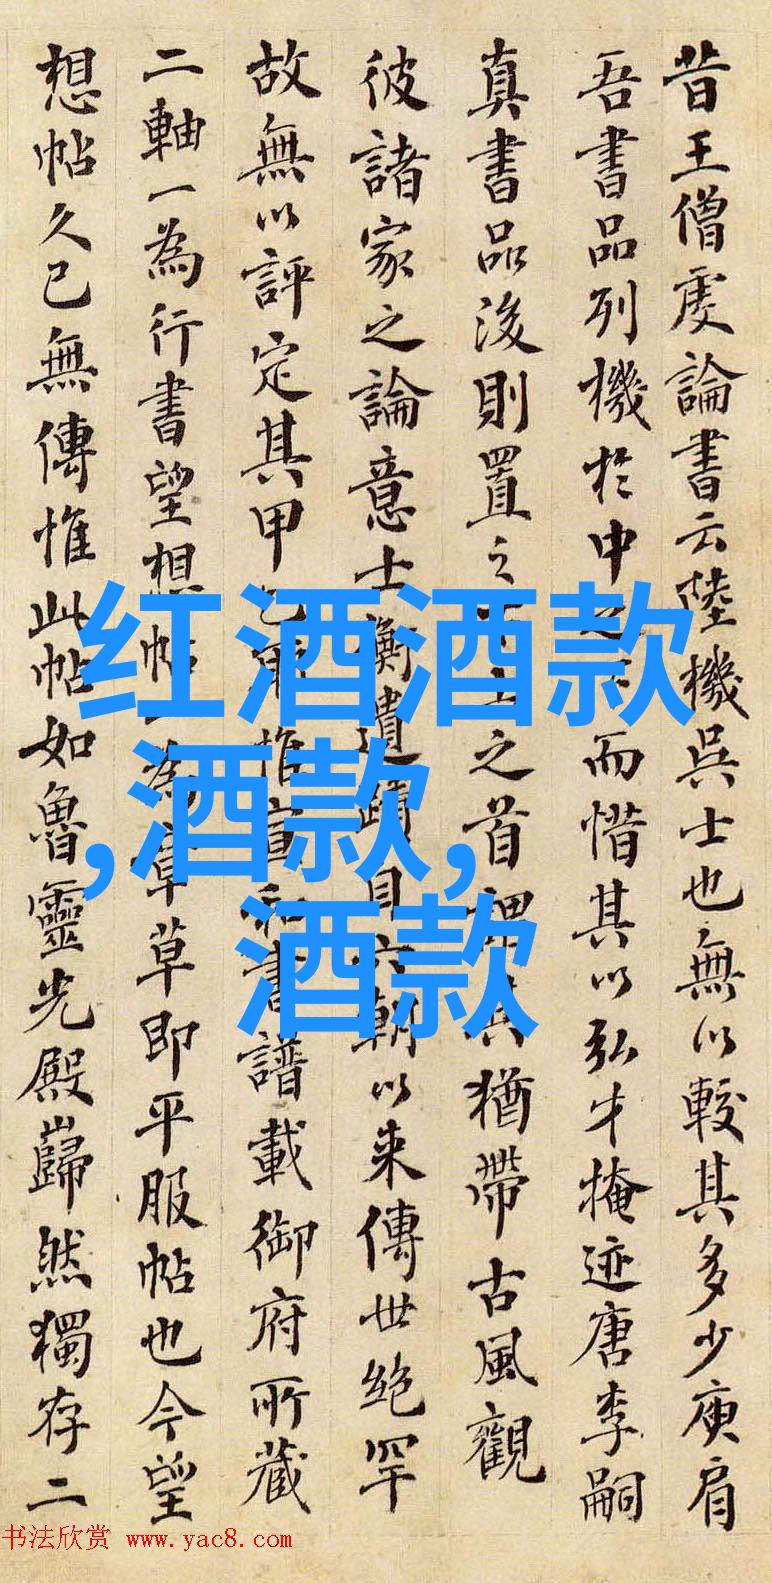 昔王僧虔論書云陸機吳士也無以較其多少庾肩
吾書品列機於中之下而惜其以弘才掩迹唐李嗣
真書品後則置之下上之首謂其猶帶古風觀
彼諸家之論意士衡遺蹟自六朝以来傳世絶罕
故無以評定其甲乙耳惟宣和書譜載御府所藏
二軸一為行書望想帖一為章草即平服帖也今望
想帖久已無傳惟此帖如魯靈光殿巋然獨存二
红酒酒款
,酒款,
酒款
书法欣赏 www.yac8.com